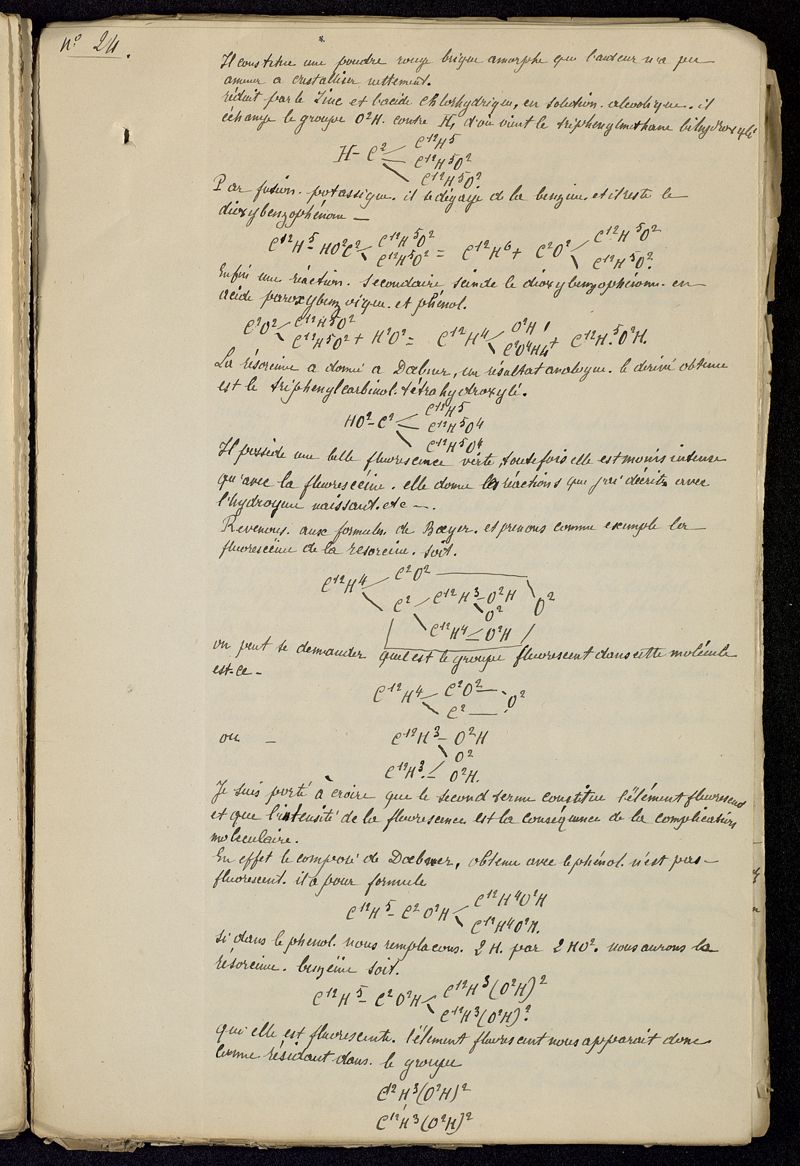 nº 24.
Il constitue une poudre rouge brique amorphe que l'auteur n'a pu
amener a cristalliser nettement.
réduit par le Zinc et l'acide Chlorhydrique, en solution. alcoolique. il
échange le groupe O²H. contre H, d'où vient le triphenylméthane bihydroxylé
C¹²H⁵
H - C² C¹²H⁵O²
C¹²H⁵O².
Par fusion. potassique. il se dégage de la benzine. et il reste le
dioxybenzophénone —
C¹²H⁵ - HO²C² C¹²H⁵O² C¹²H⁵O² = C¹²H⁶ + C²O² C¹²H⁵O² C¹²H⁵O².
Enfin une réaction. secondaire scinde le dioxybenzophénone. en
acide paroxybenzoique. et phénol.
C²O² C¹²H⁵O² C¹²H⁵O² + H²O² = C¹²H⁴ O²H C²O⁴H + C¹²H⁵.O²H.
La résorcine a donné a Dœbner, un résultat analogue. le derivé obtenu
est le triphenylcarbinol. tétrahydroxylé.
C¹²H⁵
HO² - C² C¹²H⁵O⁴
C¹²H⁵O⁴
Il possède une belle fluorescence verte, toutefois elle est moins intense
qu'avec la fluoresceïne. elle donne les réactions que j'ai décrites avec
l'hydrogene naissant. etc —.
Revenons. aux formules de Bæyer. et prenons comme exemple la
fluoresceïne de la résorcine. soit.
C¹²H⁴ C²O²
C² C¹²H³ - O²H O²
O²
C¹²H⁴ - O²H
on peut se demander quel est le groupe fluorescent dans cette molécule
est-ce -
C¹²H⁴ C²O² — O²
C² —
ou - C¹²H³ - O²H
O²
C¹²H³ - O²H.
Je suis porté à croire que le second terme constitue l'élément fluorescent
et que l'intensité de la fluorescence est la conséquence de la complication
moleculaire.
En effet le composé de Dœbner, obtenu avec le phénol. n'est pas -
fluorescent. il a pour formule
C¹²H⁵ - C²O²H C¹²H⁴O²H
C¹²H⁴O²H.
Si dans le phenol. nous remplaçons. 2 H. par 2 HO². nous aurons la
résorcine. benzéïne soit.
C¹²H⁵ - C²O²H C¹²H³(O²H)²
C¹²H³(O²H)².
qui elle est fluorescente. l'élement fluorescent nous apparait donc
comme résidant dans. le groupe
C¹²H³(O²H)²
C¹²H³(O²H)²